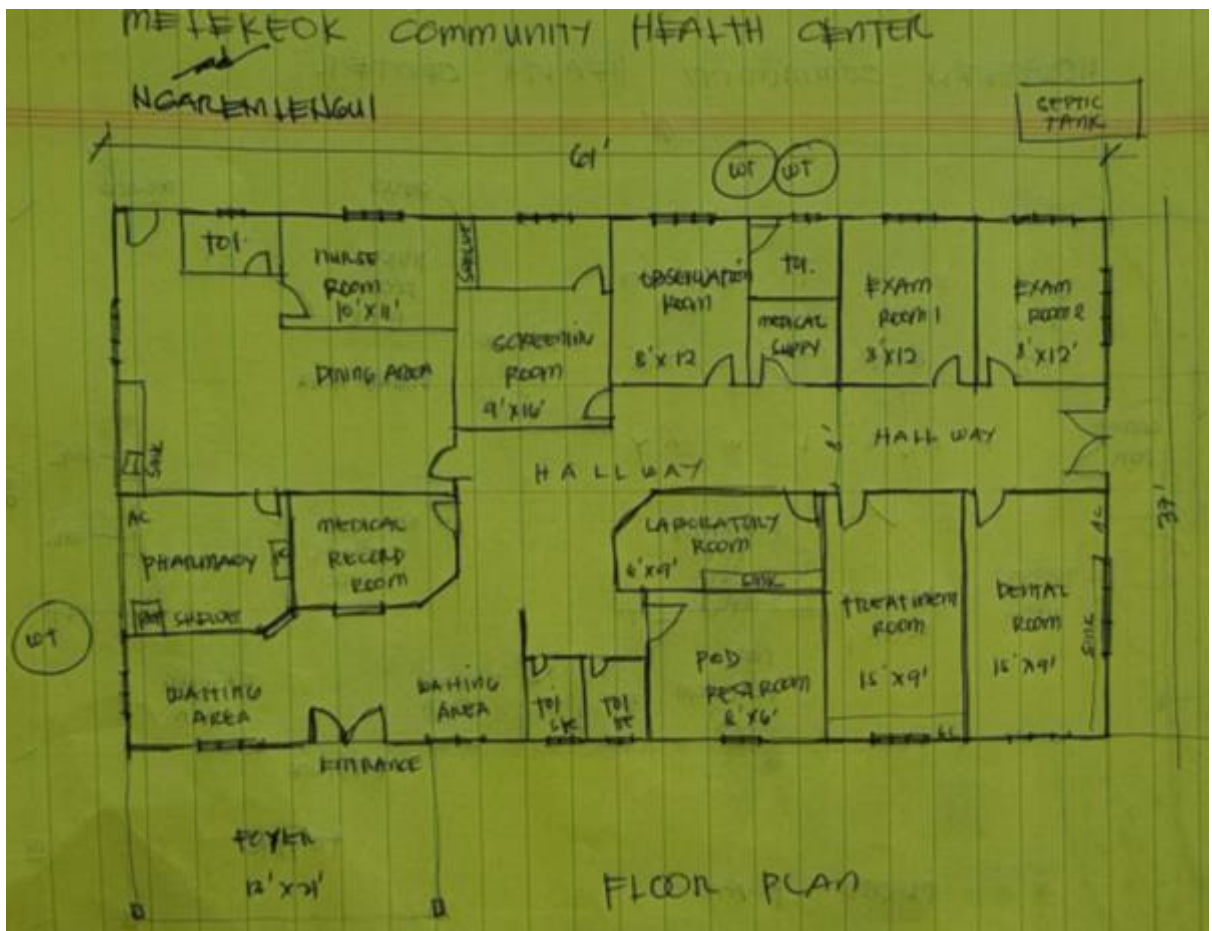 MELEKEOK COMMUNITY HEALTH CENTER
and
NGAREMLENGUI
SEPTIC
TANK
61'
WT
WT
TOI.
NURSE
ROOM
10'X11'
SHELVE
SCREENIN
ROOM
9'X16'
OBSERVATION
ROOM
8'X12
TOI.
MEDICAL
SUPPY
EXAM
ROOM 1
8'X12
EXAM
ROOM 2
8'X12'
DINING AREA
SINK
HALLWAY
6'
HALLWAY
37'
AC
PHARMACY
SHELVE
REF
AC
MEDICAL
RECORD
ROOM
LABORATORY
ROOM
6'X9'
SINK
TREATMENT
ROOM
15'X9'
AC
DENTAL
ROOM
15'X9'
AC
SINK
WT
WAITING
AREA
WAITING
AREA
TOI
TOI
POD
RESTROOM
8'X6'
ENTRANCE
FOYER
FLOOR PLAN